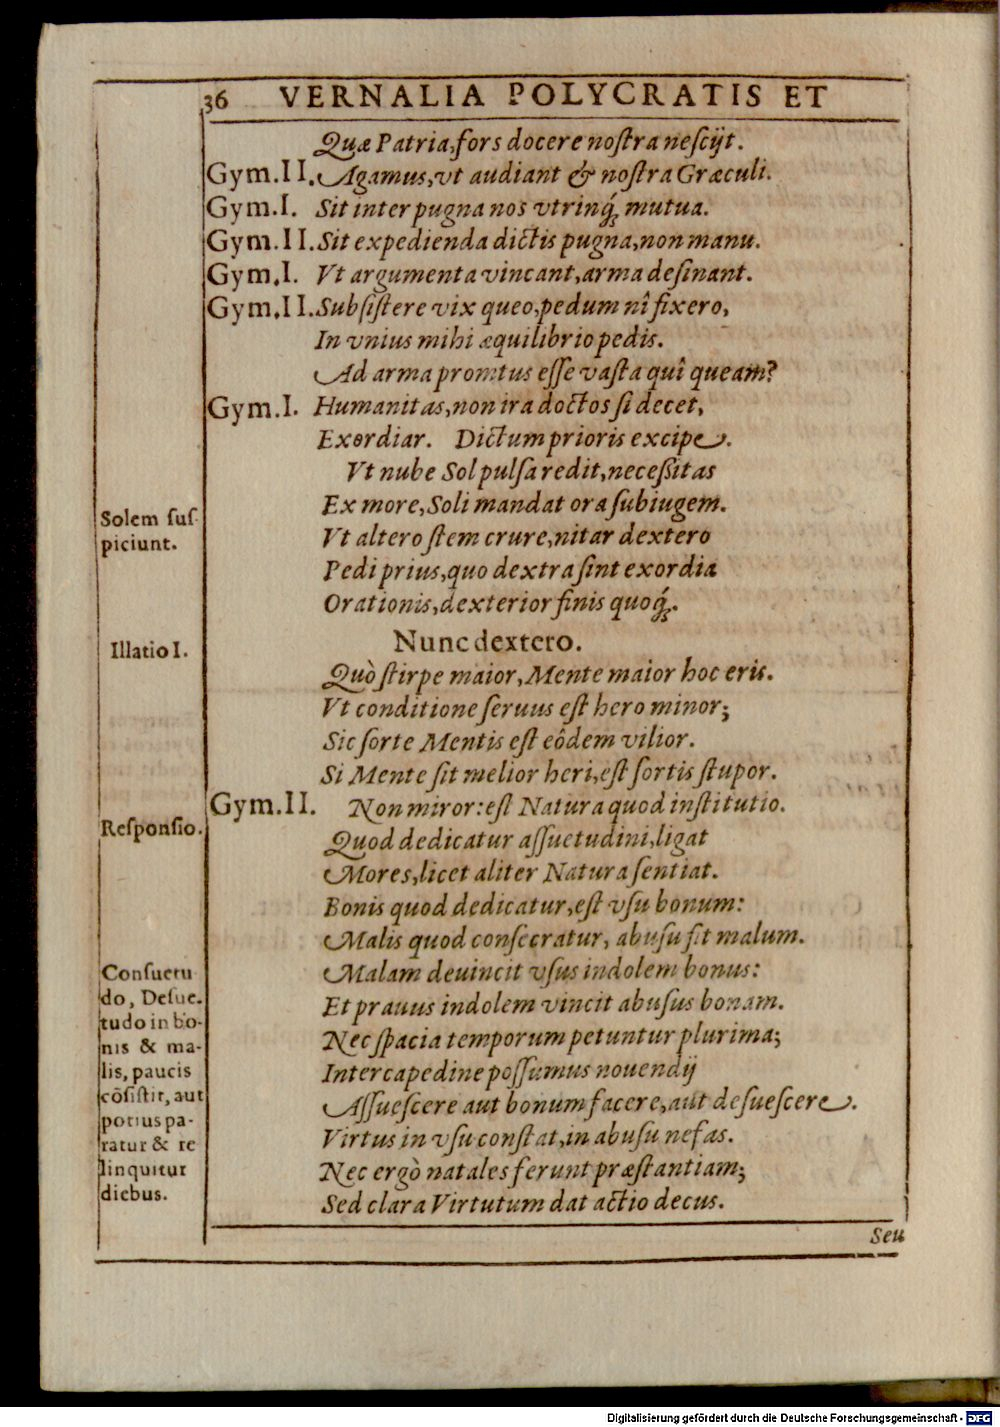 36 VERNALIA POLYCRATIS ET
Quæ Patria, fors docere noſtra neſcijt.
Gym. II. Agamus, vt audiant & noſtra Græculi.
Gym. I. Sit inter pugna nos vtrinq́; mutua.
Gym. II. Sit expedienda dictis pugna, non manu.
Gym. I. Vt argumenta vincant, arma deſinant.
Gym. II. Subſiſtere vix queo, pedum nî fixero,
In vnius mihi æquilibrio pedis.
Ad arma promtus eſſe vaſta quî queam?
Gym. I. Humanitas, non ira doctos ſi decet,
Exordiar. Dictum prioris excipe.
Vt nube Sol pulſa redit, neceſſitas
Ex more, Soli mandat ora ſubiugem.
Solem ſuſ-
piciunt.
Vt altero ſtem crure, nitar dextero
Pedi prius, quo dextra ſint exordia
Orationis, dexterior finis quoq́;.
Nunc dextero.
Illatio I.
Quò ſtirpe maior, Mente maior hoc eris.
Vt conditione ſeruus eſt hero minor;
Sic ſorte Mentis eſt eôdem vilior.
Si Mente ſit melior heri, eſt ſortis ſtupor.
Gym. II. Non miror: eſt Natura quod inſtitutio.
Reſponſio.
Quod dedicatur aſſuetudini, ligat
Mores, licet aliter Natura ſentiat.
Bonis quod dedicatur, eſt vſu bonum:
Malis quod conſecratur, abuſu fit malum.
Malam deuincit vſus indolem bonus:
Et prauus indolem vincit abuſus bonam.
Nec ſpacia temporum petuntur plurima;
Intercapedine poſſumus nouendij
Aſſueſcere aut bonum facere, aut deſueſcere.
Virtus in vſu conſtat, in abuſu nefas.
Nec ergò natales ferunt præſtantiam;
Sed clara Virtutum dat actio decus.
Conſuetu
do, Deſue-
tudo in bo-
nis & ma-
lis, paucis
cōſiſtit, aut
potius pa-
ratur & re
linquitur
diebus.
Seu
Digitalisierung gefördert durch die Deutsche Forschungsgemeinschaft - DFG